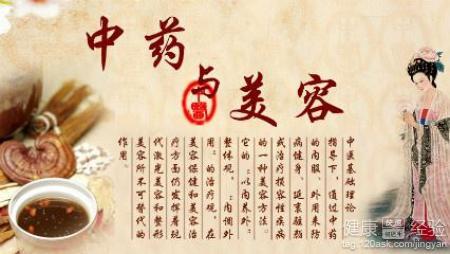 中药
与
美容
中医基础理论
指导下，通过中药
的内服、外用来防
病健身、延衰驻颜
或治疗损容性疾病
的一种美容方法。
它的“以内养外”
整体观、“内调外
用”的治疗观，在
美容保健和美容治
疗方面仍发挥着现
代激光美容和整形
美容所不可替代的
作用。
健康 经验
tag.120ask.com/jingyan